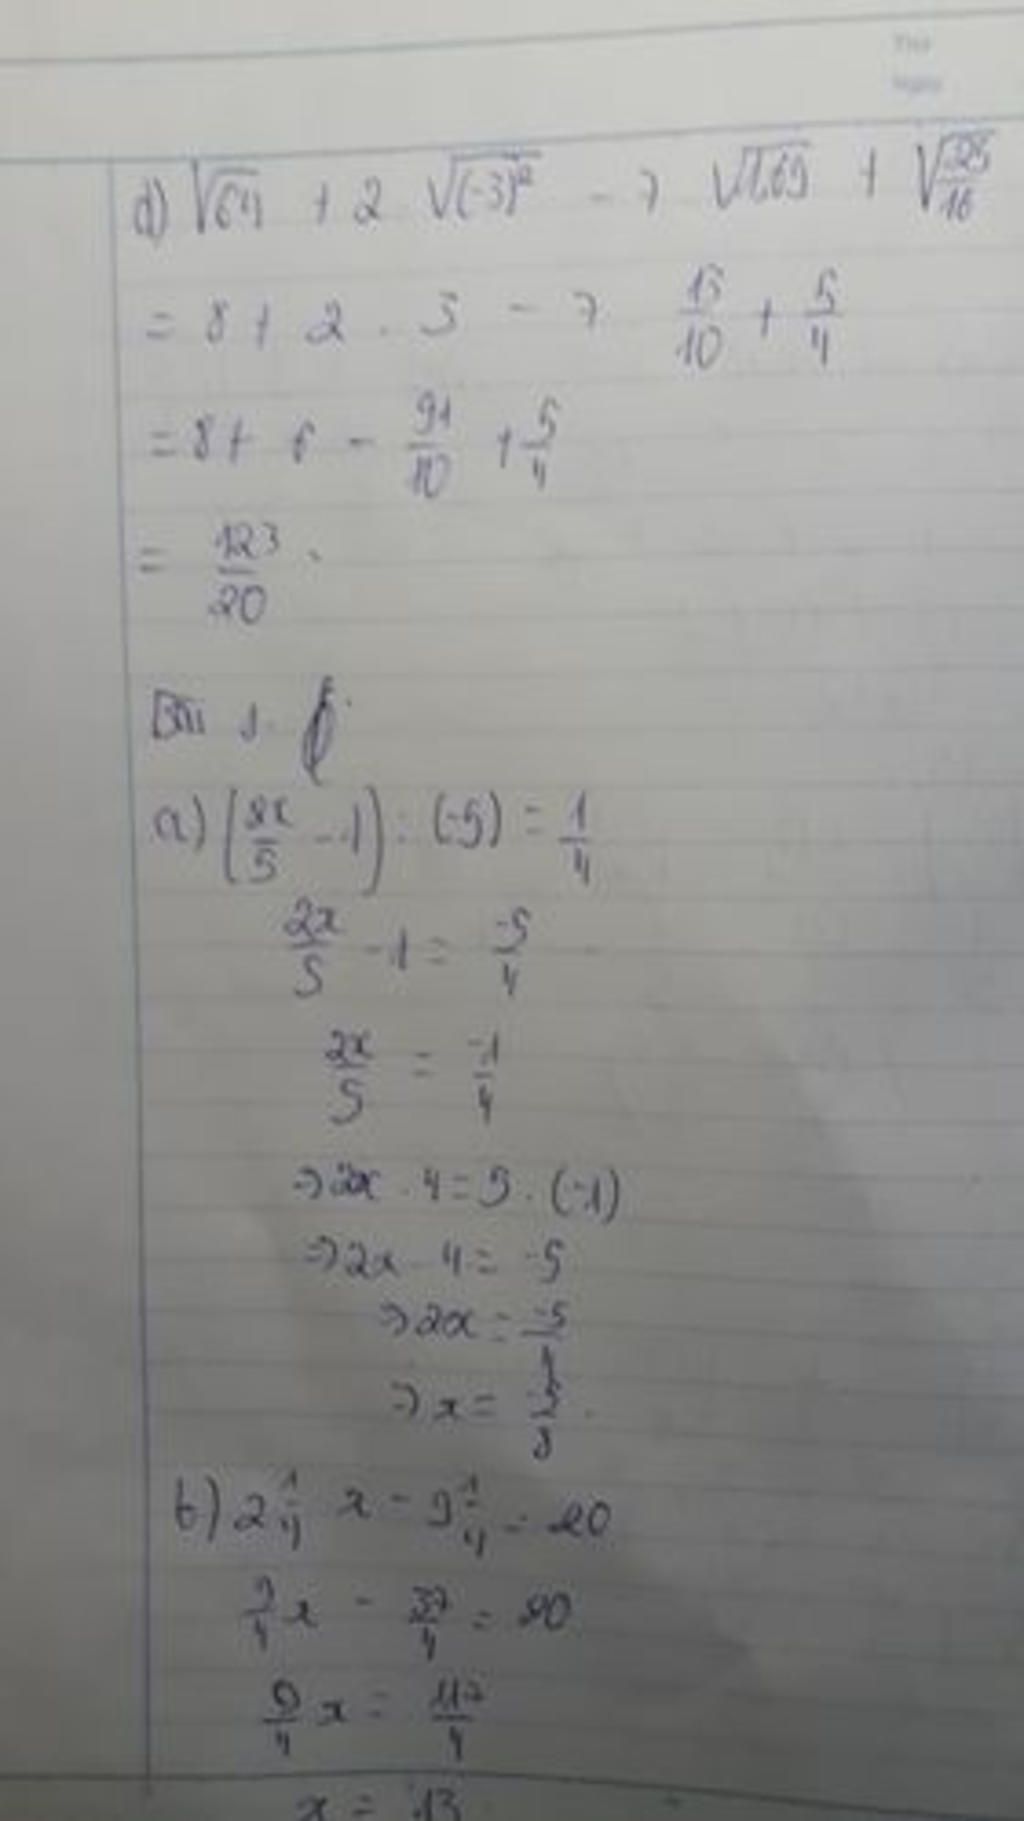 Thứ
Ngày
d) √64 + 2 √(-3)² - 7 √1,69 + √25/16
= 8 + 2 . 3 - 7 13/10 + 5/4
= 8 + 6 - 91/10 + 5/4
= 123/20 .
Bài 1.
a) (2x/5 - 1) : (-5) = 1/4
2x/5 - 1 = -5/4
2x/5 = -1/4
⇒ 2x . 4 = 5 . (-1)
⇒ 2x 4 = -5
⇒ 2x = -5/4
⇒ x = -5/8 .
b) 2 1/4 x - 9 1/4 = 20
9/4 x - 37/4 = 20
9/4 x = 117/4
x = 13